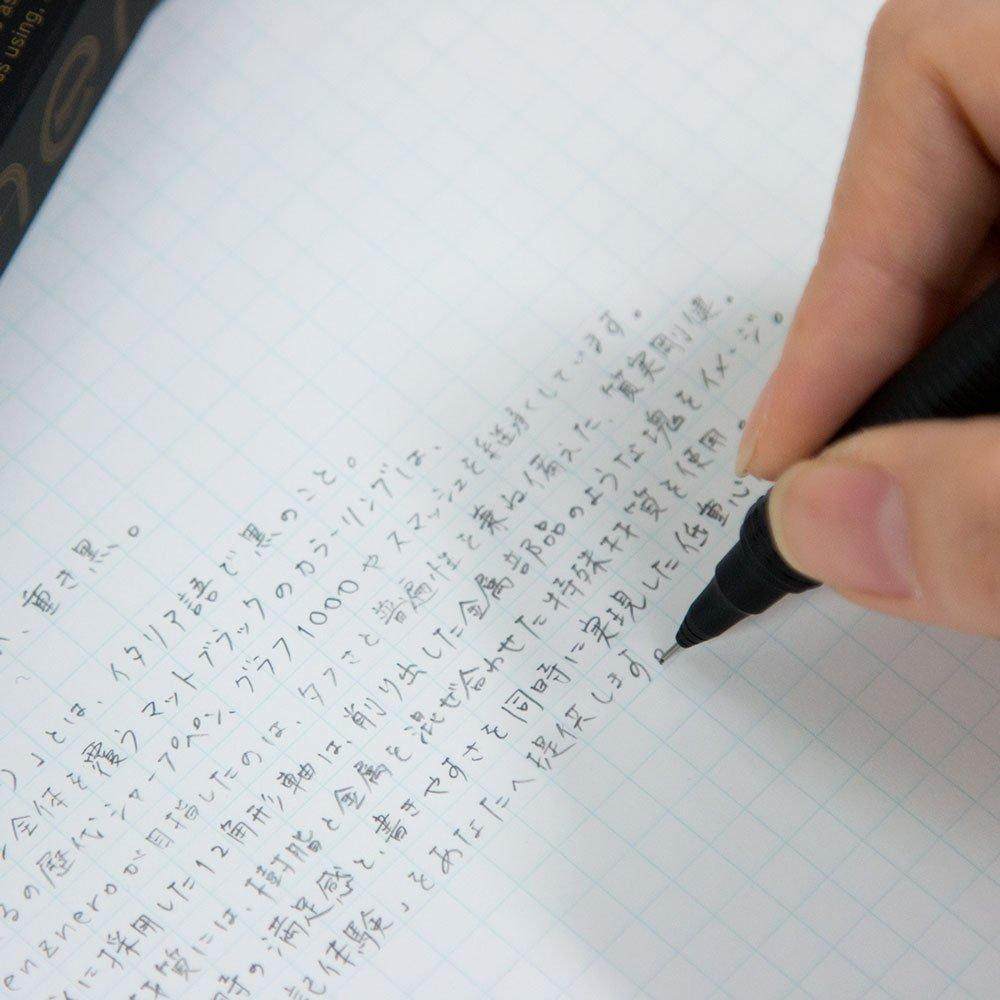 重き黒。
」とは、イタリア語で黒のこと。
全体を覆うマットブラックのカラーリングは、
の歴代シャープペン、グラフ1000やスマッシュを継承しています。
enzneroが目指したのは、タフさと普遍性を兼ね備えた、質実剛健。
に採用した12角形軸は、削り出した金属部品のような塊をイメージ。
材質には、樹脂と金属を混ぜ合わせた特殊材質を使用。
時の満足感と、書きやすさを同時に実現した低重心
記体験」をあなたへ提供します。
ss using,